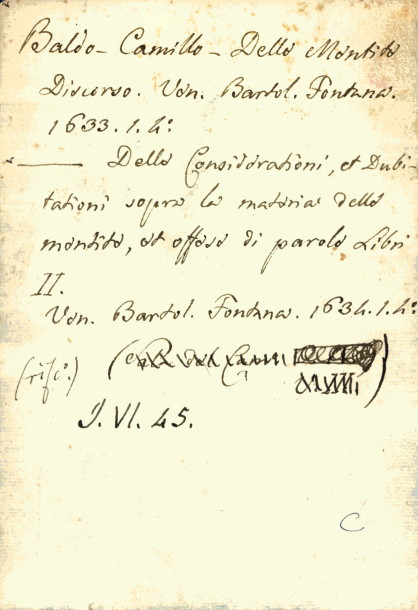 Baldo - Camillo - Delle Mentite
Discorso. Ven. Bartol. Fontana.
1633. 1. 4:
—— Delle Considerationi, et Dubi-
tationi sopra la materia delle
mentite, et offese di parole Libri
II.
Ven. Bartol. Fontana. 1634. 1. 4:
(
(risc.°)
)
J. VI. 45.
C